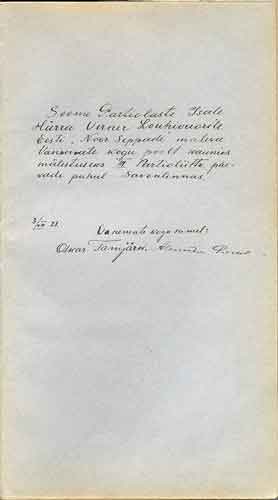 Soome Partiolaste Isale
Härra Verner Louhivuorile
Eesti Noor Seppade maleva
Vanemate kogu poolt kauniks
mälestuseks II Partioliitto päe-
vade puhul Savonlinnas.
Vanemate kogu nimel:
Oskar Tamjärv.